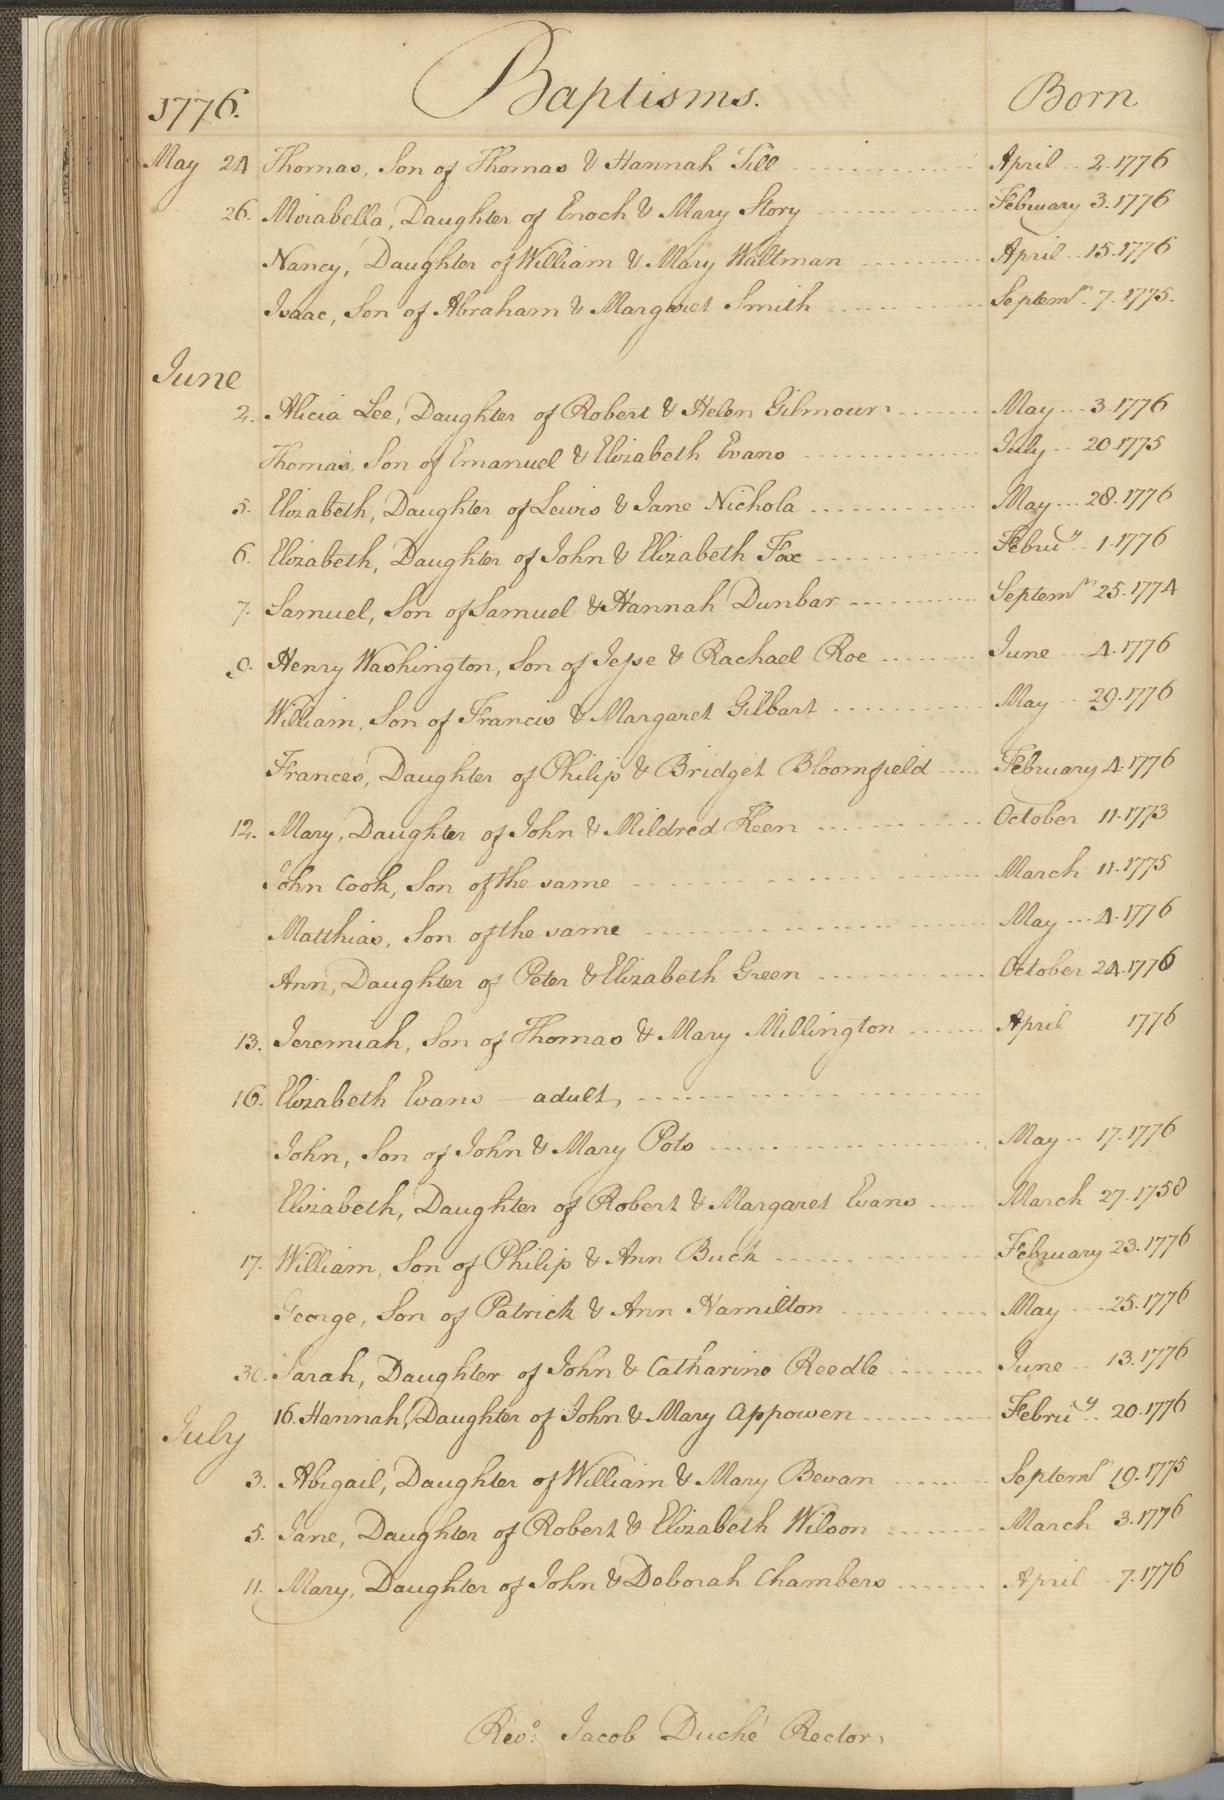 1776. Baptisms. Born
May 24 Thomas, Son of Thomas & Hannah Till April 2. 1776
26. Mirabella, Daughter of Enoch & Mary Story February 3. 1776
Nancy, Daughter of William & Mary Waltman April 15. 1776
Isaac, Son of Abraham & Margaret Smith Septemr. 7. 1775.
June
2. Alicia Lee, Daughter of Robert & Helen Gilmour May 3. 1776
Thomas, Son of Emanuel & Elizabeth Evans July 20 1775
5. Elizabeth, Daughter of Lewis & Jane Nichola May 28. 1776
6. Elizabeth, Daughter of John & Elizabeth Fox Februy. 1. 1776
7. Samuel, Son of Samuel & Hannah Dunbar Septemr 25. 1774
9. Henry Washington, Son of Jesse & Rachael Roe June 4. 1776
William, Son of Francis & Margaret Gilbart May 29. 1776
Frances, Daughter of Philip & Bridget Bloomfield February 4. 1776
12. Mary, Daughter of John & Mildred Keen October 11. 1773
John Cook, Son of the same March 11. 1775
Matthias, Son of the same May 4. 1776
Ann, Daughter of Peter & Elizabeth Green October 24. 1776
13. Jeremiah, Son of Thomas & Mary Millington April 1776
16. Elizabeth Evans - adult,
John, Son of John & Mary Pots May 17. 1776
Elizabeth, Daughter of Robert & Margaret Evans March 27. 1758
17. William, Son of Philip & Ann Buck February 23. 1776
George, Son of Patrick & Ann Hamilton May 25. 1776
30. Sarah, Daughter of John & Catharine Reedle June 13. 1776
16. Hannah, Daughter of John & Mary Appowen Februy. 20. 1776
July
3. Abigail, Daughter of William & Mary Bevan Septemr 19. 1775
5. Jane, Daughter of Robert & Elizabeth Wilson March 3. 1776
11. Mary, Daughter of John & Deborah Chambers April 7. 1776
Revd. Jacob Duché Rector